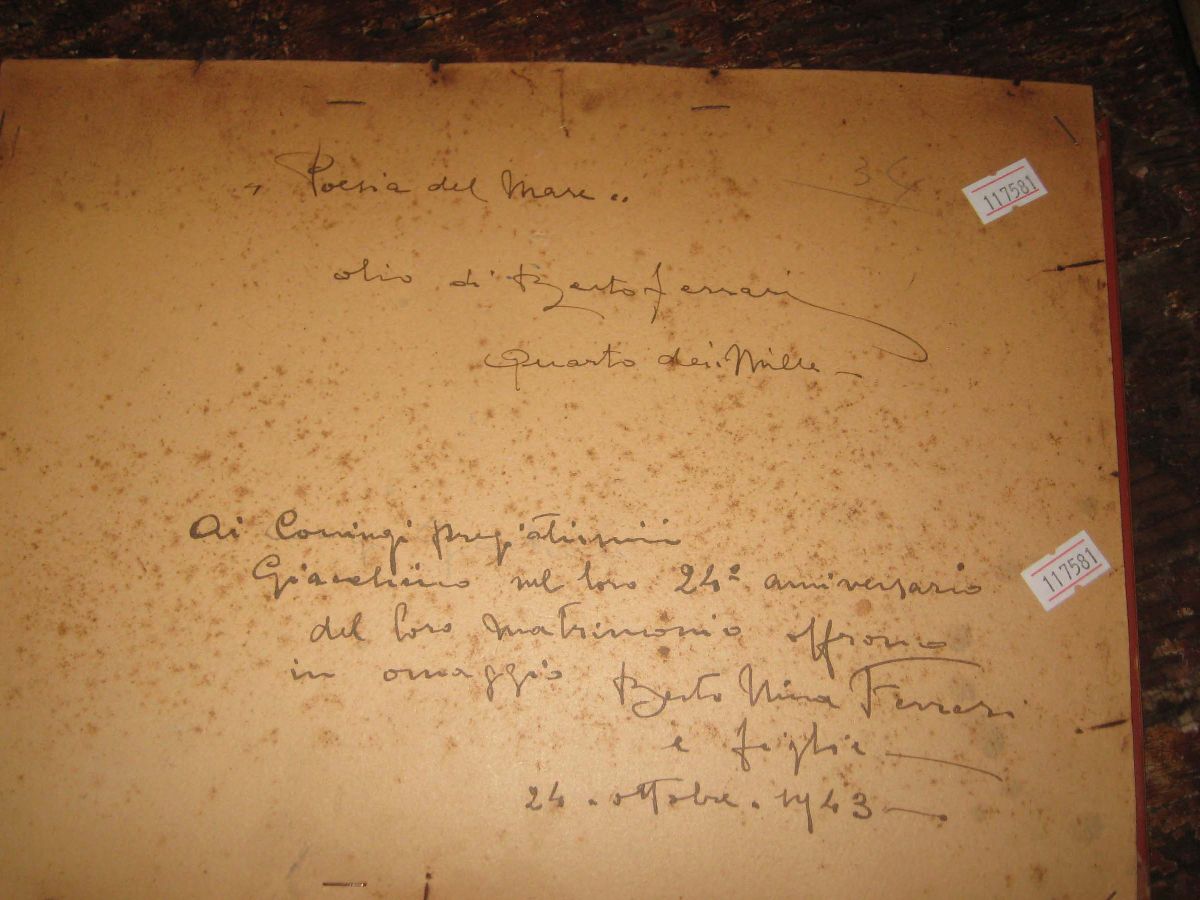 „ Poesia del Mare „
34
117581
olio di Berto Ferrari
Quarto dei Mille
Ai Coniugi pregiatissimi
Giacchino nel loro 24º anniversario
117581
del loro matrimonio offrono
in omaggio Berto Nina Ferrari
e figlie
24 . ottobre . 1943